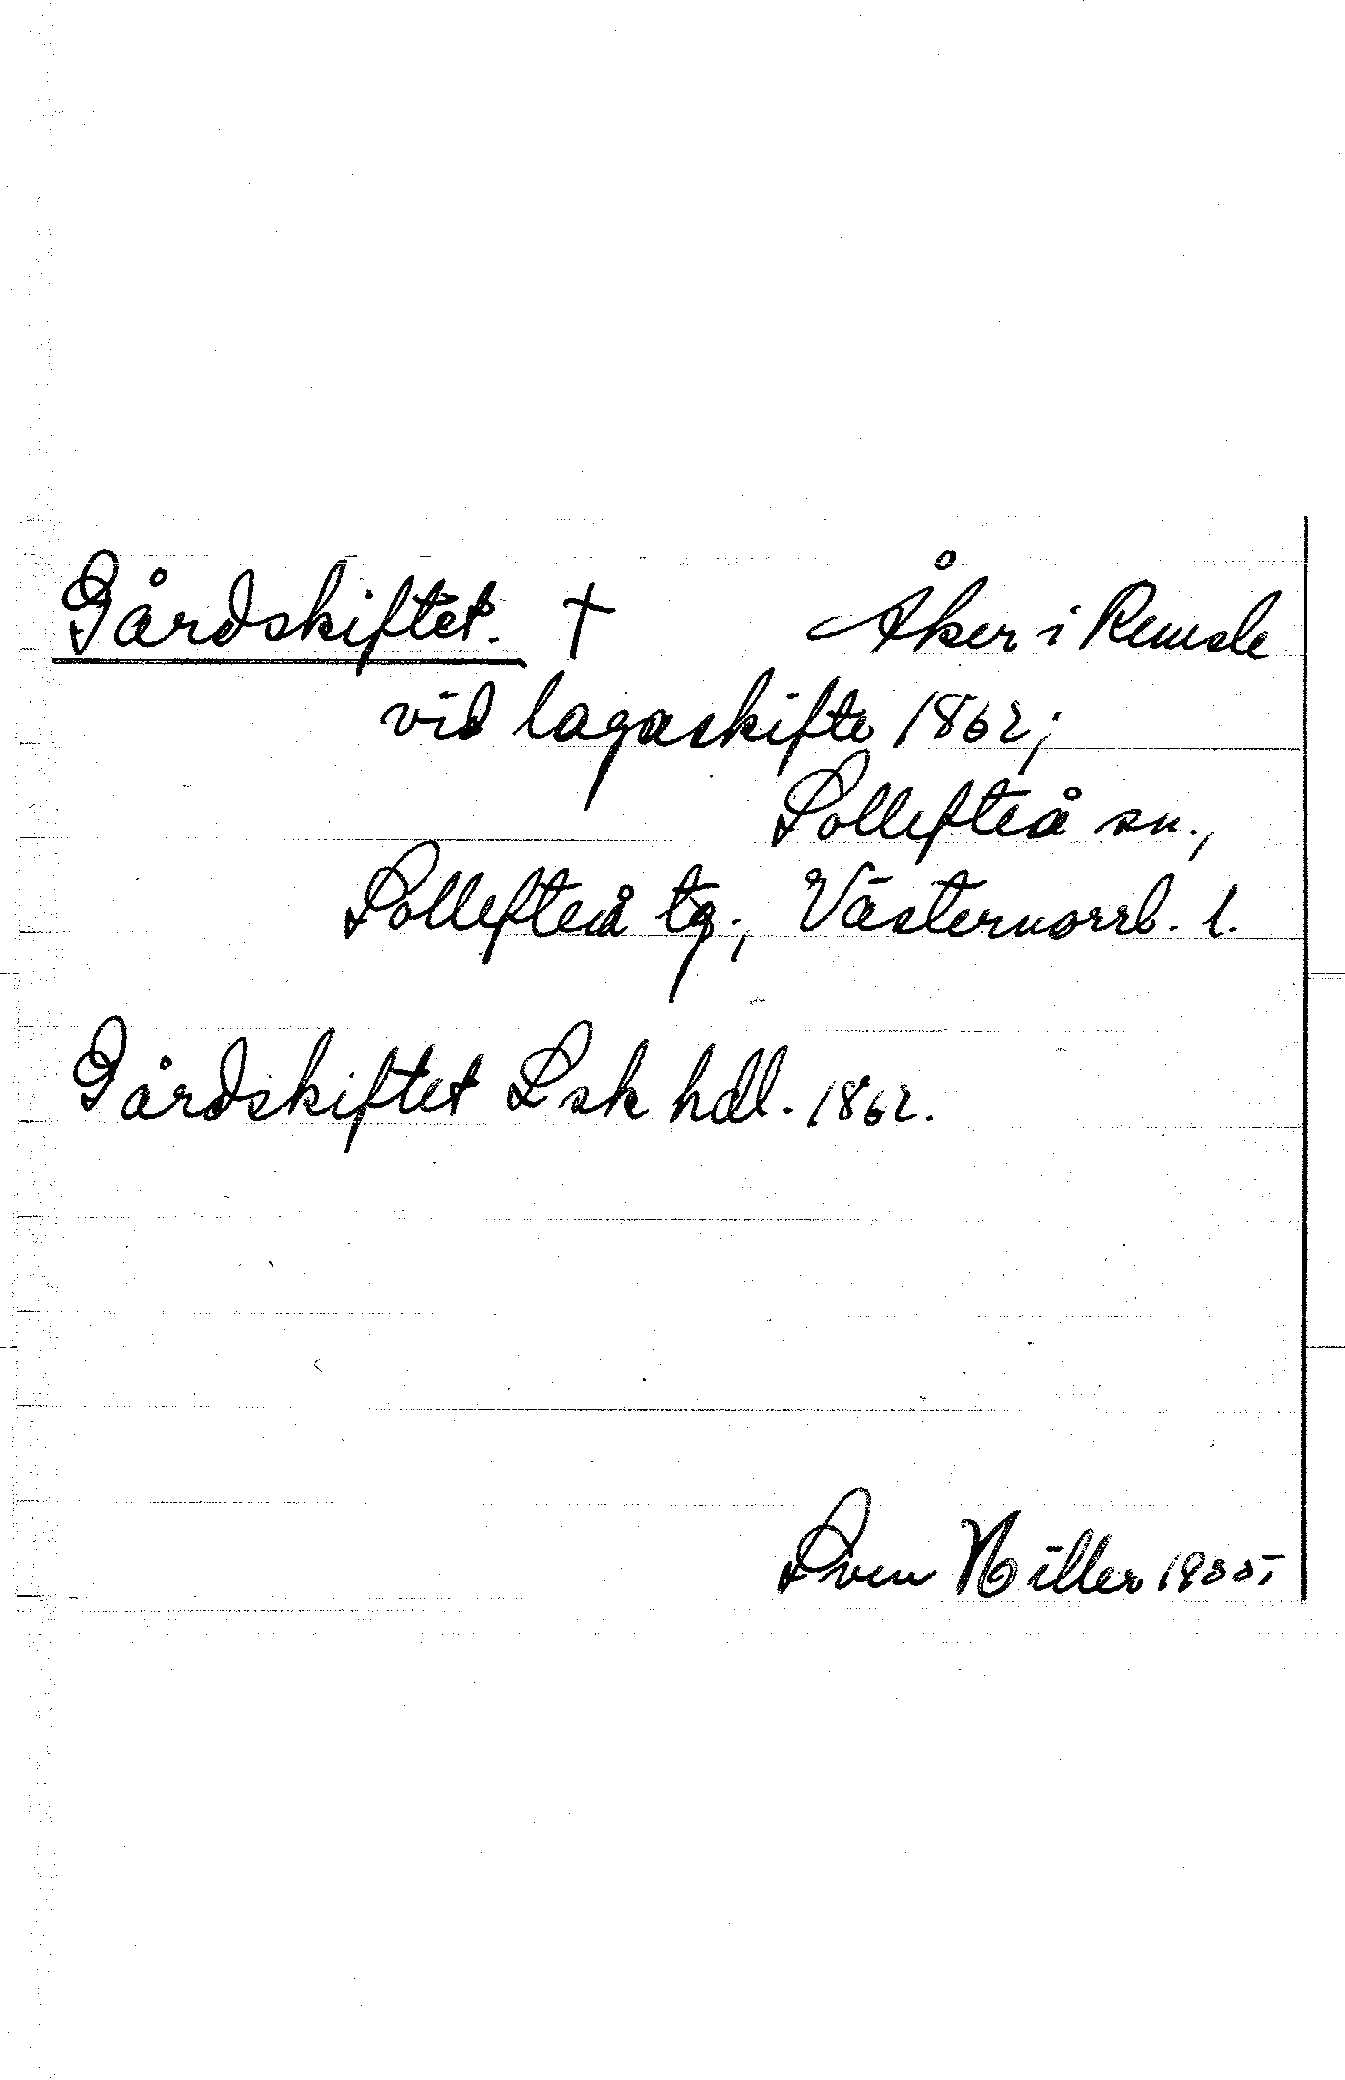 Gårdskiftet. † Åker i Remsle
vid lagaskifte 1862;
Sollefteå sn.,
Sollefteå tg., Västernorrl. l.
Gårdskiftet Lsk hdl. 1862.
Sven Hiller 1935